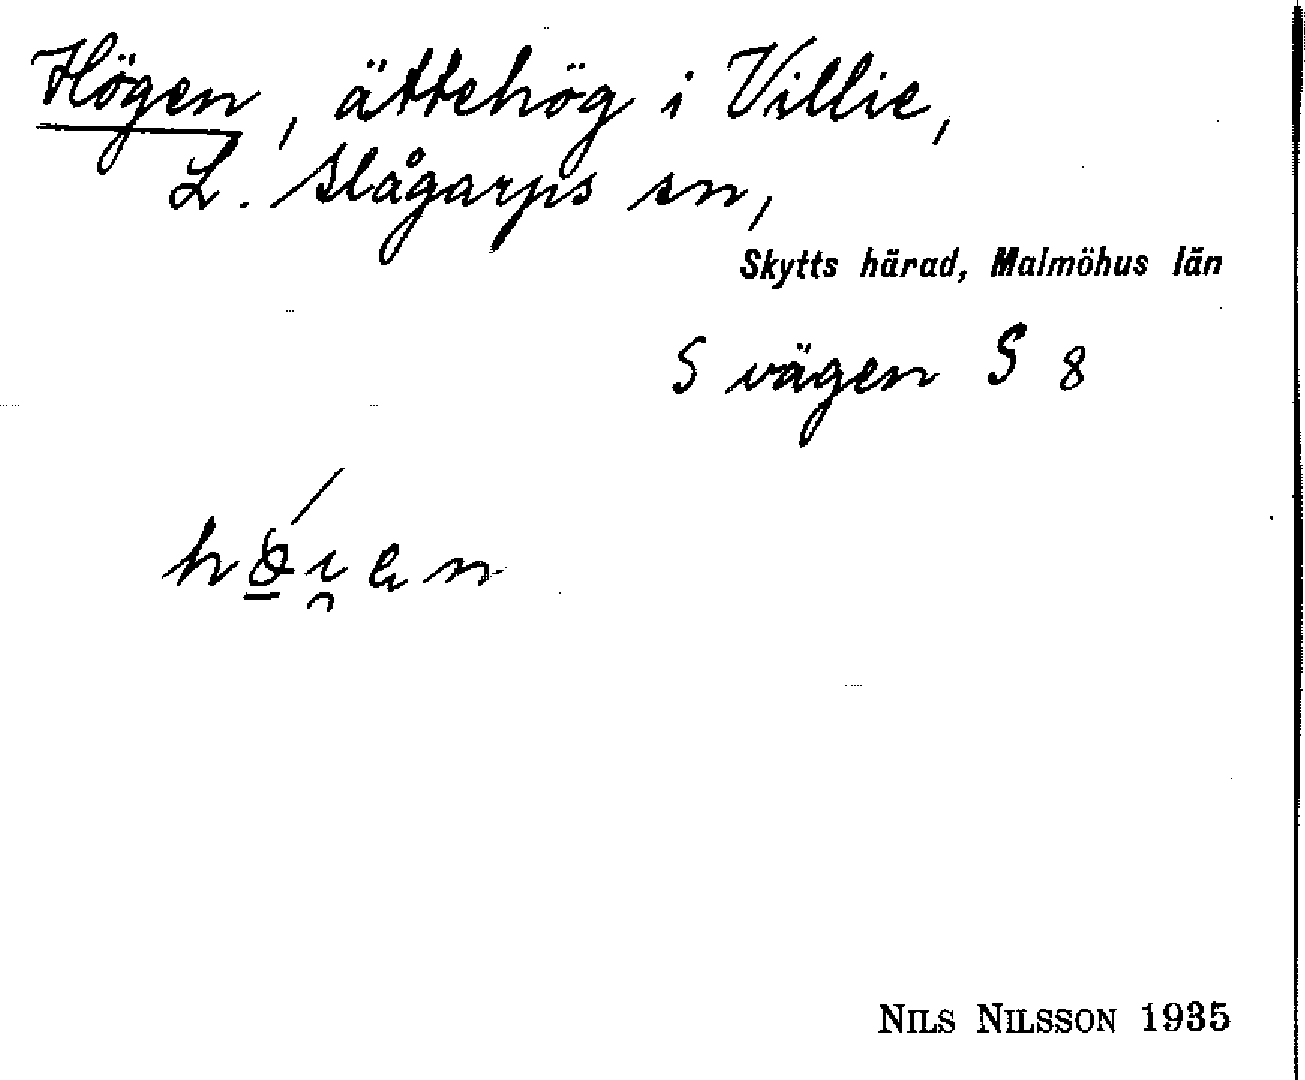 Högen, ättehög i Villie,
L. Slågarps sn,
Skytts härad, Malmöhus län
S vägen S 8
NILS NILSSON 1935